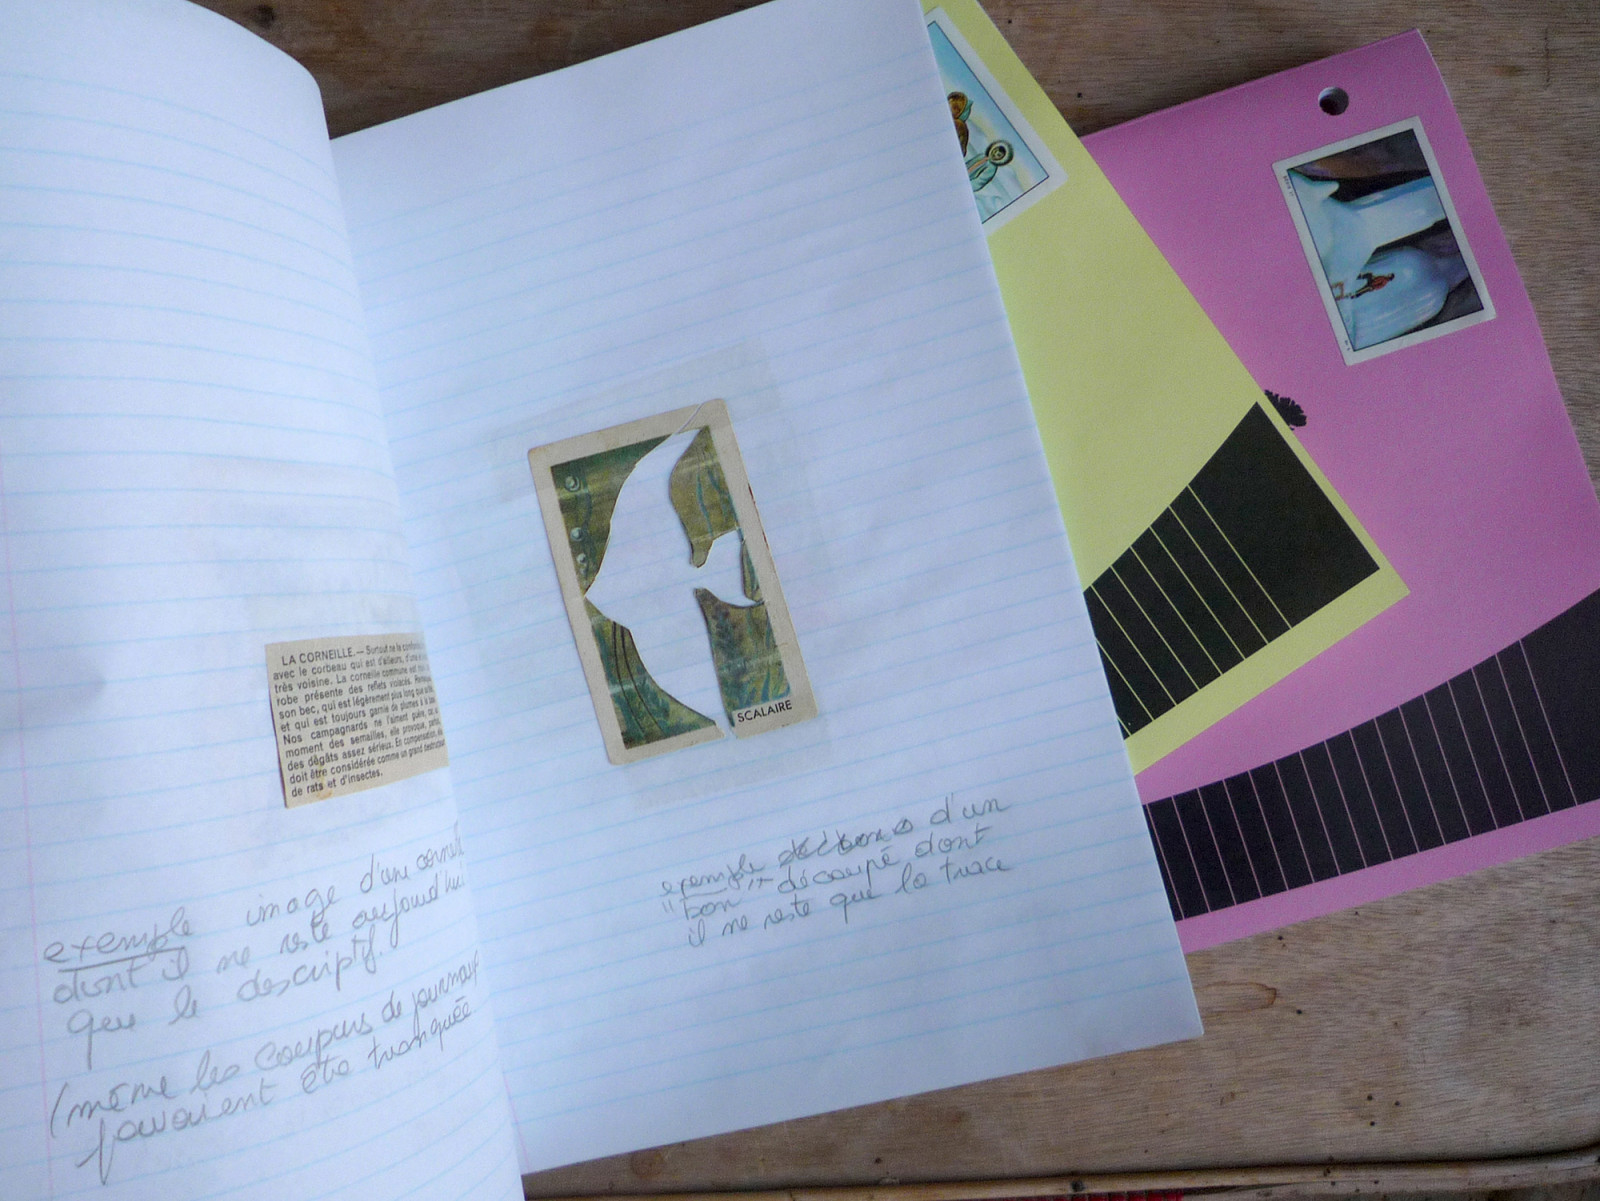 LA CORNEILLE. — Surtout ne la
avec le corbeau qui est d'ailleurs,
très voisine. La corneille commune est
robe présente des reflets violacés.
son bec, qui est légèrement plus long que
et qui est toujours garnie de plumes à la
Nos campagnards ne l'aiment guère, car
moment des semailles, elle provoque,
des dégâts assez sérieux. En compensation,
doit être considérée comme un grand
de rats et d'insectes.
exemple image d'une corneille
dont il ne reste aujourd'hui
que le descriptif.
(même les coupures de journaux
pouvaient être tronquée
SCALAIRE
exemple d'un
"bon" découpé dont
il ne reste que la trace